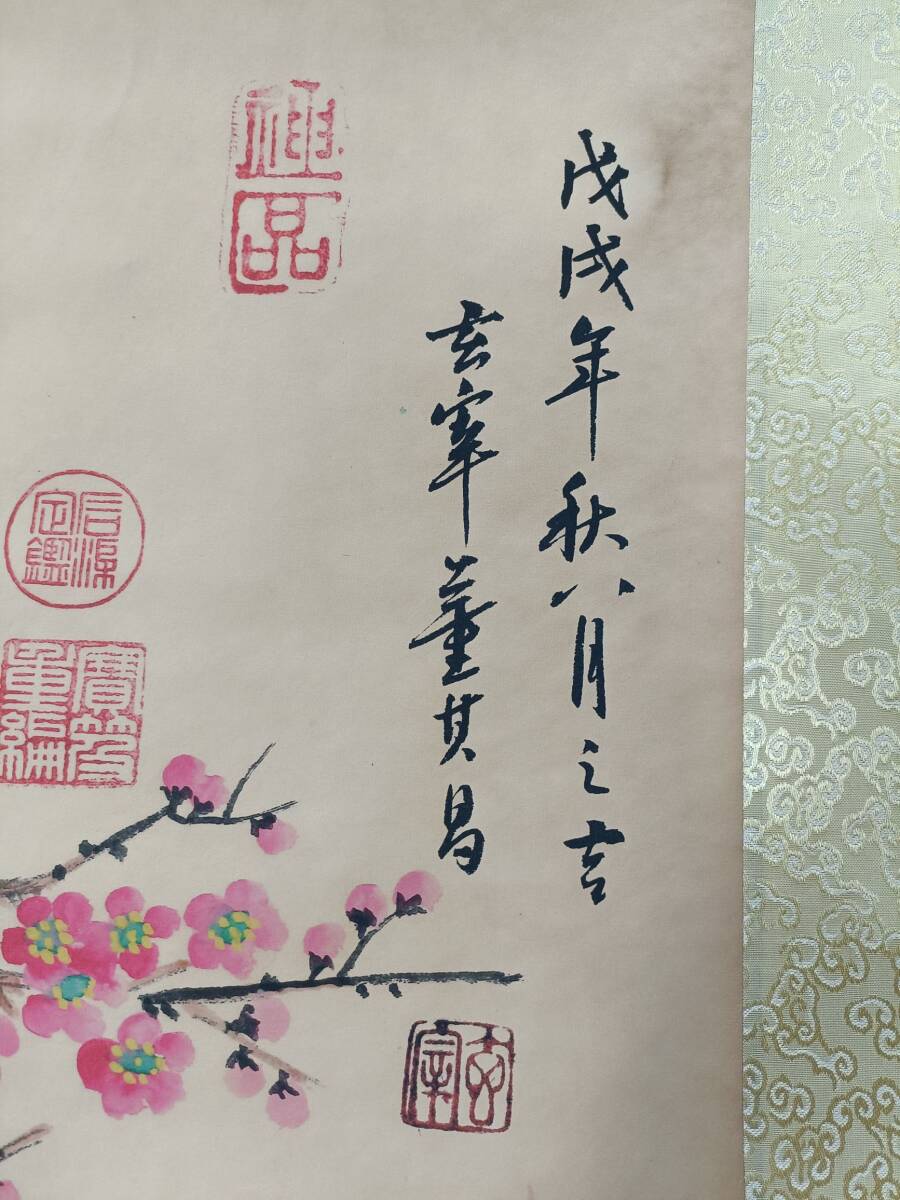 戊戌年秋八月之吉
玄宰董其昌
神品
石渠定鑑
寶笈重編
玄宰